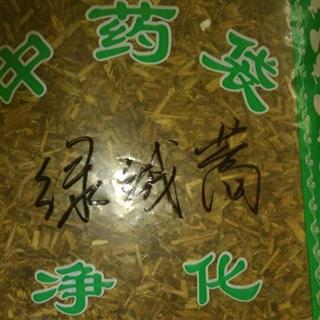 中药袋
绿诚蒿
净化